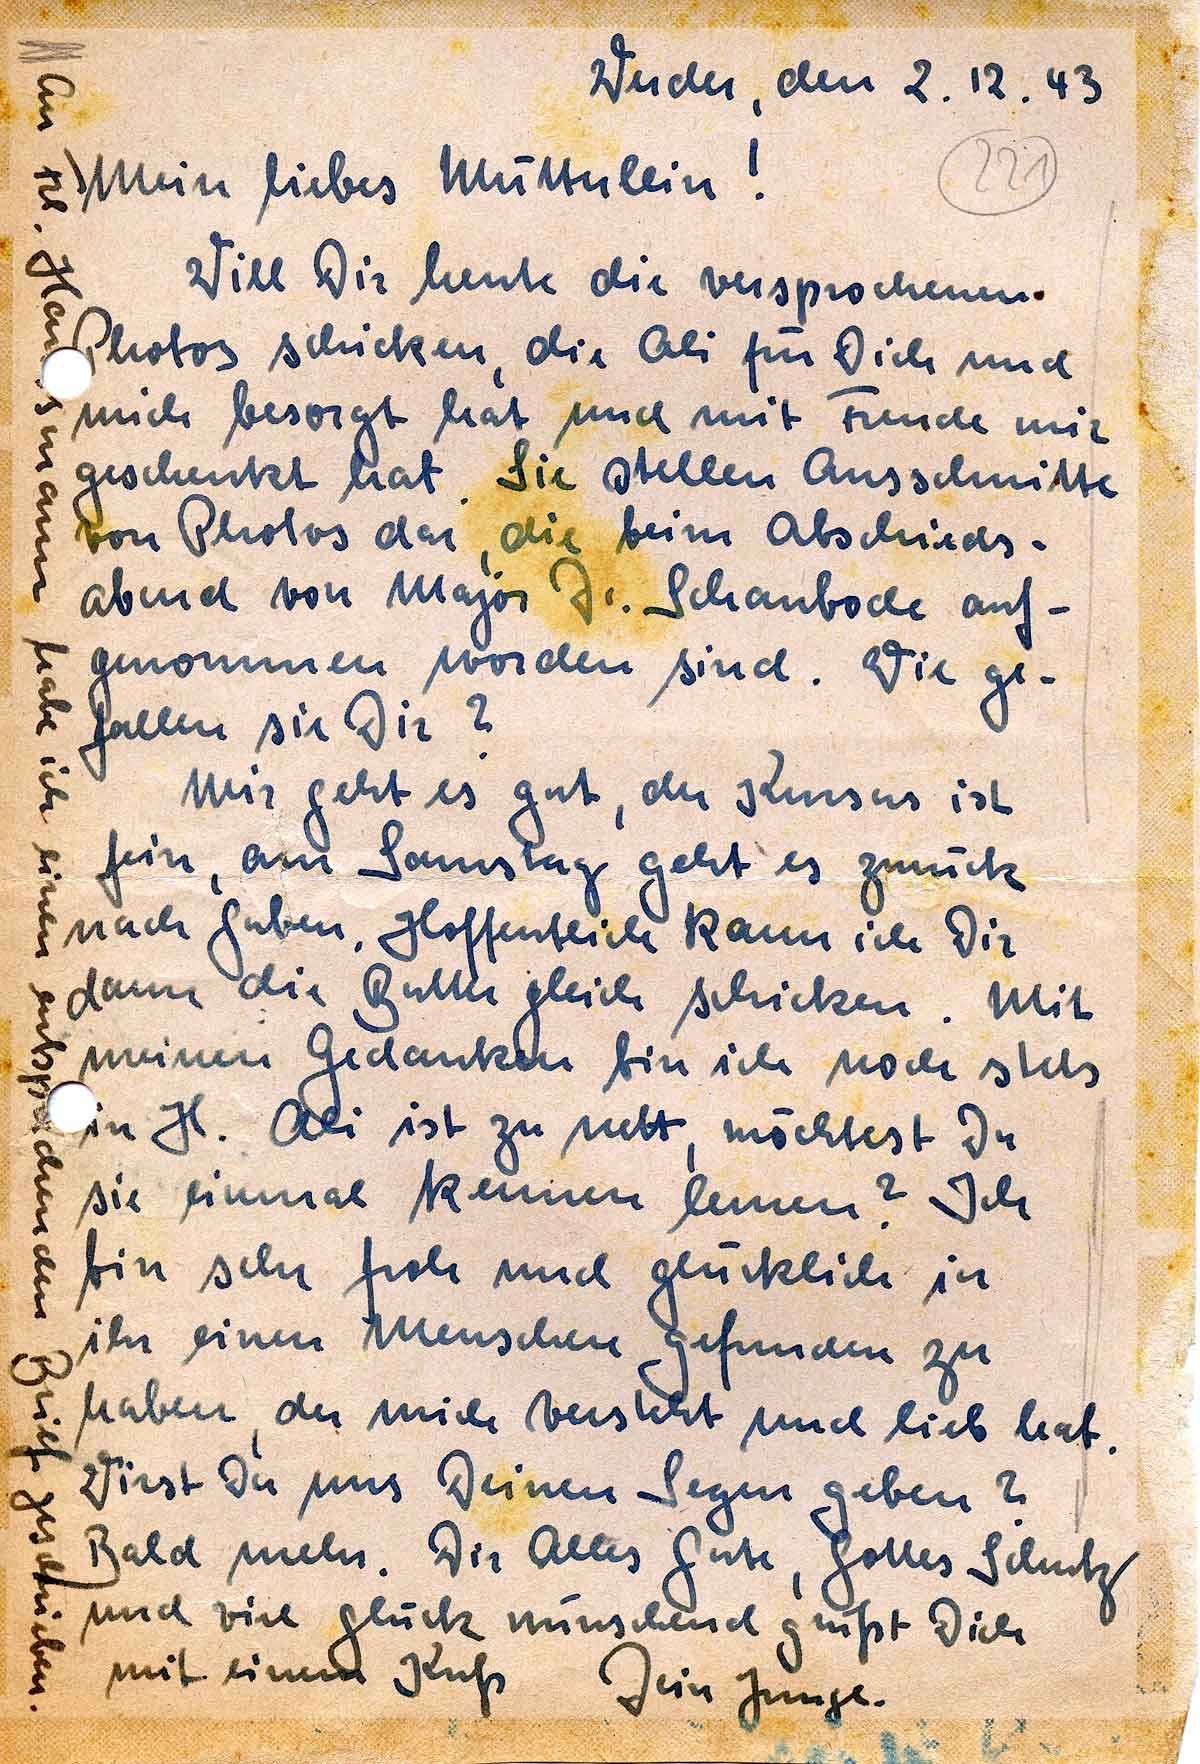 Werder, den 2.12.43
221
Mein liebes Mütterlein!
Will Dir heute die versprochenen
Photos schicken, die Ali für Dich und
mich besorgt hat und mit Freude mir
geschenkt hat. Sie stellen Ausschnitte
von Photos dar, die beim Abschieds-
abend von Major Dr. Schanbode auf-
genommen worden sind. Wie ge-
fallen sie Dir?
Mir geht es gut, der Kursus ist
fein, am Samstag geht es zurück
nach Guben. Hoffentlich kann ich Dir
dann die Butter gleich schicken. Mit
meinen Gedanken bin ich noch stets
in H. Ali ist zu nett, möchtest Du
sie einmal kennen lernen? Ich
bin sehr froh und glücklich in
ihr einen Menschen gefunden zu
haben, der mich versteht und lieb hat.
Wirst Du uns Deinen Segen geben?
Bald mehr. Dir Alles Gute, Gottes Schutz
und viel Glück wünschend grüßt Dich
mit einem Kuß Dein Junge.
An Frl. Hansmann habe ich einen entsprechenden Brief geschrieben.